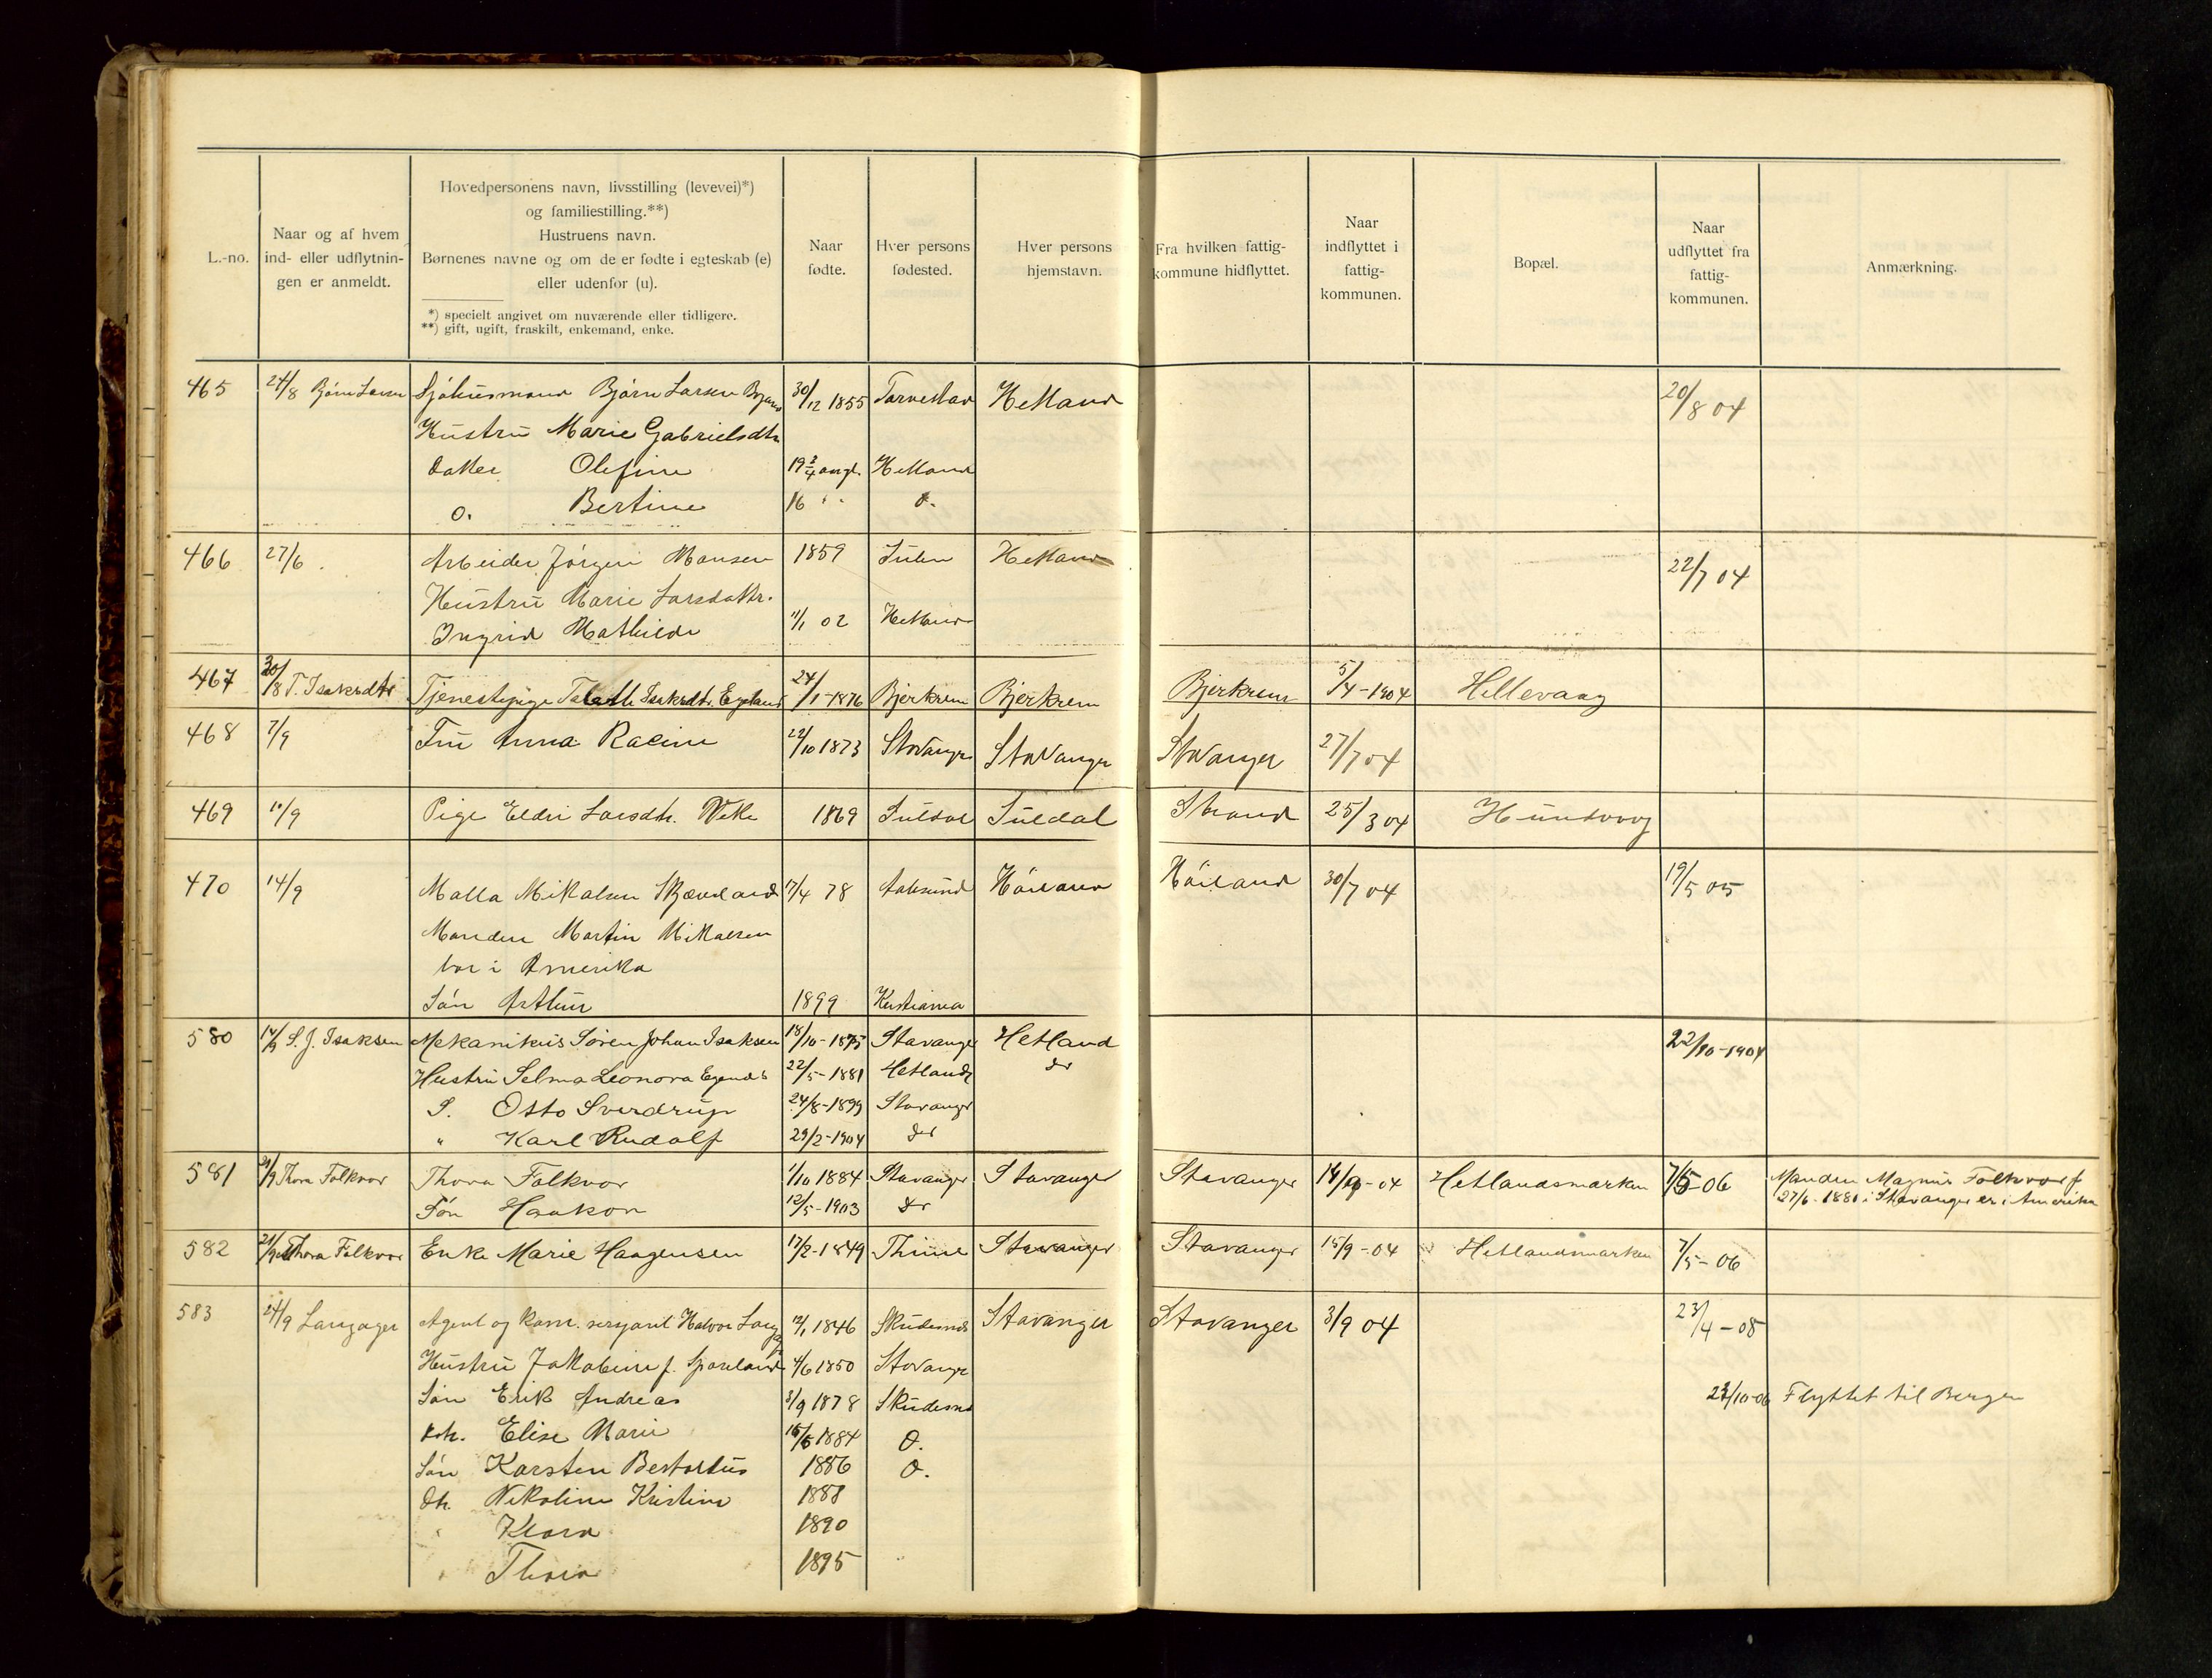 L.-no.
Naar og af hvem
ind- eller udflytnin-
gen er anmeldt.
Hovedpersonens navn, livsstilling (levevei)*)
og familiestilling.**)
Hustruens navn.
Børnenes navne og om de er fødte i egteskab (e)
eller udenfor (u).
*) specielt angivet om nuværende eller tidligere.
**) gift, ugift, fraskilt, enkemand, enke.
Naar
fødte.
Hver persons
fødested.
Hver persons
hjemstavn.
Fra hvilken fattig-
kommune hidflyttet.
Naar
indflyttet i
fattig-
kommunen.
Bopæl.
Naar
udflyttet fra
fattig-
kommunen.
Anmærkning.
465 24/8 Bjørn Larsen Sjøhusmand Bjørn Larsen 30/12 1855 Torvestad Hetland 20/8 04
Hustru Marie Gabrielsdtr
datter Olefine 19 Hetland
o. Bertine 16 " d.
466 27/6 Arbeider Jørgen Hansen 1859 Hetland 22/7 04
Hustru Marie Larsdattr.
Ingrid Mathilde 11/1 02 Hetland
467 30/8 T. Isaksdtr Tjenestepige Isaksdtr. Egeland 24/1-1876 Bjerkrem Bjerkrem Bjerkrem 5/4-1904 Hillevaag
468 7/9 Fru Anna Racine 22/10 1873 Stavanger Stavanger Stavanger 27/7 04
469 10/9 Pige Eldri Larsdtr. 1869 Suldal Suldal Strand 25/3 04 Hundvaag
470 14/9 Malla Mikalsen Skjæveland 17/4 78 Aalesund Høiland Høiland 30/7 04 19/5 05
Manden Martin Mikalsen
bor i Amerika
Søn Arthur 1899 Kristiania
580 14/9 S. J. Isaksen Mekanikus Søren Johan Isaksen 18/10-1875 Stavanger Hetland 22/10-1904
Hustru Selma Leonora 22/5-1881 Hetland do
S. Otto Sverdrup 24/8-1899 Stavanger
" Karl Rudolf 29/2-1904 do
581 21/9 Thora Falkvor Thora Falkvor 1/10 1884 Stavanger Stavanger Stavanger 14/9-04 Hetlandsmarken 7/5-06 Manden Magnus Falkvor f
Søn Haakon 12/5-1903 do 27/6-1881 i Stavanger er i Amerika
582 21/9 Thora Falkvor Enke Marie Haagensen 17/2-1849 Thime Stavanger Stavanger 15/9-04 Hetlandsmarken 7/5-06
583 24/9 Langager Agent og Halvor 12/1 1846 Skudesnæs Stavanger Stavanger 3/9 04 23/4-08
Hustru Jakobine f. 4/6 1850 Stavanger
Søn Erik Andreas 3/9 1878 Skudesnæs 22/10-06 Flyttet til Bergen
dtr. Elise Marie 15/5 1884 d.
Søn Karsten Bertortus 1886 d.
dtr. Nikoline Kristine 1888
" Klara 1890
" Thora 1895